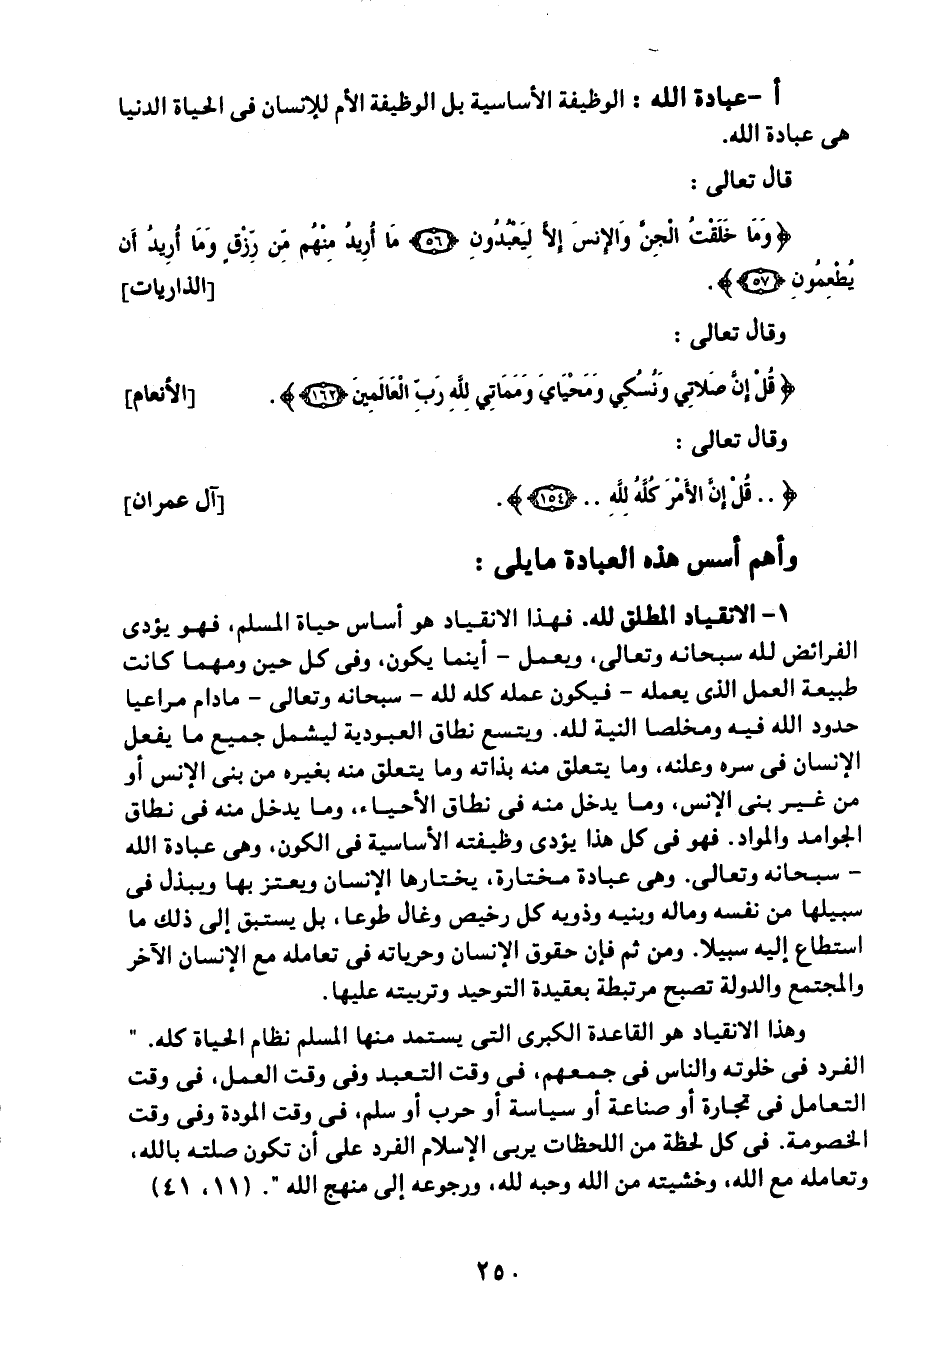 أ -عبادة الله : الوظيفة الأساسية بل الوظيفة الأم للإنسان فى الحياة الدنيا
هى عبادة الله.
قال تعالى :
﴿ وَمَا خَلَقْتُ الْجِنَّ وَالإِنسَ إِلاَّ لِيَعْبُدُونِ ﴿٥٦﴾ مَا أُرِيدُ مِنْهُم مِّن رِّزْقٍ وَمَا أُرِيدُ أَن
يُطْعِمُونِ ﴿٥٧﴾ ﴾ . [الذاريات]
وقال تعالى :
﴿ قُلْ إِنَّ صَلاتِي وَنُسُكِي وَمَحْيَايَ وَمَمَاتِي لِلَّهِ رَبِّ الْعَالَمِينَ ﴿١٦٢﴾ ﴾ . [الأنعام]
وقال تعالى :
﴿ .. قُلْ إِنَّ الأَمْرَ كُلَّهُ لِلَّهِ .. ﴿١٥٤﴾ ﴾ . [آل عمران]
وأهم أسس هذه العبادة مايلى :
١- الانقياد المطلق لله. فهذا الانقياد هو أساس حياة المسلم، فهو يؤدى
الفرائض لله سبحانه وتعالى، ويعمل - أينما يكون، وفى كل حين ومهما كانت
طبيعة العمل الذى يعمله - فيكون عمله كله لله - سبحانه وتعالى - مادام مراعيا
حدود الله فيه ومخلصا النية لله. ويتسع نطاق العبودية ليشمل جميع ما يفعل
الإنسان فى سره وعلنه، وما يتعلق منه بذاته وما يتعلق منه بغيره من بنى الإنس أو
من غير بنى الإنس، وما يدخل منه فى نطاق الأحياء، وما يدخل منه فى نطاق
الجوامد والمواد. فهو فى كل هذا يؤدى وظيفته الأساسية فى الكون، وهى عبادة الله
- سبحانه وتعالى. وهى عبادة مختارة، يختارها الإنسان ويعتز بها ويبذل فى
سبيلها من نفسه وماله وبنيه وذويه كل رخيص وغال طوعا، بل يستبق إلى ذلك ما
استطاع إليه سبيلا. ومن ثم فإن حقوق الإنسان وحرياته فى تعامله مع الإنسان الآخر
والمجتمع والدولة تصبح مرتبطة بعقيدة التوحيد وتربيته عليها.
وهذا الانقياد هو القاعدة الكبرى التى يستمد منها المسلم نظام الحياة كله. "
الفرد فى خلوته والناس فى جمعهم، فى وقت التعبد وفى وقت العمل، فى وقت
التعامل فى تجارة أو صناعة أو سياسة أو حرب أو سلم، فى وقت المودة وفى وقت
الخصومة. فى كل لحظة من اللحظات يربى الإسلام الفرد على أن تكون صلته بالله،
وتعامله مع الله، وخشيته من الله وحبه لله، ورجوعه إلى منهج الله ". (١١، ٤١)
٢٥٠